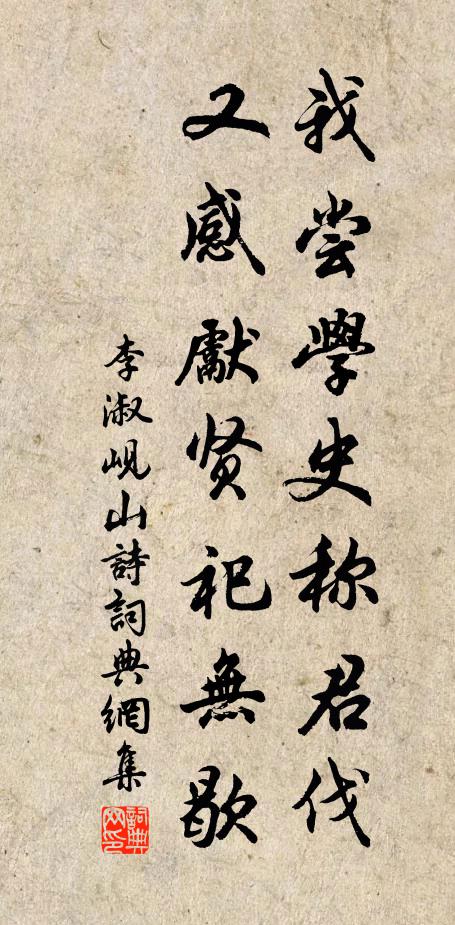 我尝學史称君伐
又感獻贤祀無歇
李淑岘山詩詞典網集
詞典网印